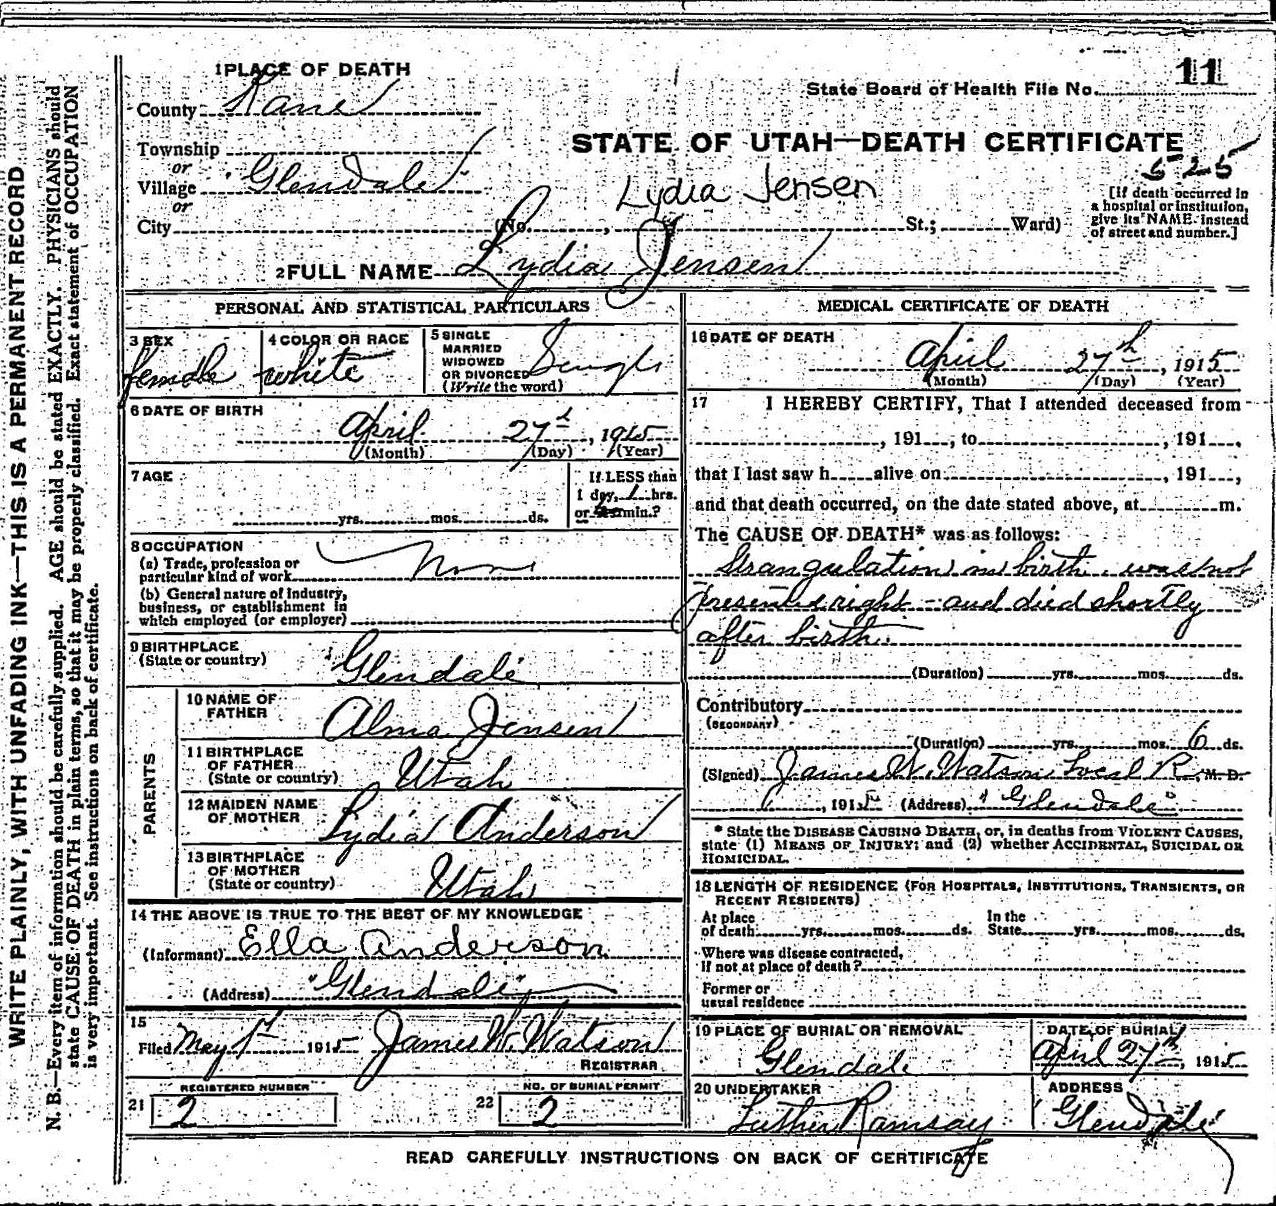 WRITE PLAINLY, WITH UNFADING INK—THIS IS A PERMANENT RECORD
N. B.—Every item of information should be carefully supplied. AGE should be stated EXACTLY. PHYSICIANS should
state CAUSE OF DEATH in plain terms, so that it may be properly classified. Exact statement of OCCUPATION
is very important. See instructions on back of certificate.
1 PLACE OF DEATH
County Kane
Township
or
Village Glendale
or
City (No. , St.; Ward)
State Board of Health File No. 11
STATE OF UTAH—DEATH CERTIFICATE
525
Lydia Jensen
[If death occurred in
a hospital or institution,
give its NAME instead
of street and number.]
2 FULL NAME Lydia Jensen
PERSONAL AND STATISTICAL PARTICULARS
3 SEX female
4 COLOR OR RACE white
5 SINGLE
MARRIED
WIDOWED
OR DIVORCED Single
(Write the word)
6 DATE OF BIRTH
April 27, 1915
(Month) (Day) (Year)
7 AGE
yrs. mos. ds.
If LESS than
1 day, 1 hrs.
or min.?
8 OCCUPATION
(a) Trade, profession or
particular kind of work None
(b) General nature of industry,
business, or establishment in
which employed (or employer)
9 BIRTHPLACE
(State or country) Glendale
PARENTS
10 NAME OF
FATHER Alma Jensen
11 BIRTHPLACE
OF FATHER
(State or country) Utah
12 MAIDEN NAME
OF MOTHER Lydia Anderson
13 BIRTHPLACE
OF MOTHER
(State or country) Utah
14 THE ABOVE IS TRUE TO THE BEST OF MY KNOWLEDGE
(Informant) Ella Anderson
(Address) "Glendale"
15
Filed May 1st 1915 James W. Watson
REGISTRAR
REGISTERED NUMBER
21 2
NO. OF BURIAL PERMIT
22 2
MEDICAL CERTIFICATE OF DEATH
16 DATE OF DEATH
April 27th, 1915
(Month) (Day) (Year)
17 I HEREBY CERTIFY, That I attended deceased from
, 191 , to , 191 ,
that I last saw h alive on , 191 ,
and that death occurred, on the date stated above, at m.
The CAUSE OF DEATH* was as follows:
Strangulation in birth. was not
presented right - and died shortly
after birth.
(Duration) yrs. mos. ds.
Contributory
(SECONDARY)
(Duration) yrs. mos. 6 ds.
(Signed) James W. Watson Local R M. D.
, 1915 (Address) "Glendale"
* State the DISEASE CAUSING DEATH, or, in deaths from VIOLENT CAUSES,
state (1) MEANS OF INJURY; and (2) whether ACCIDENTAL, SUICIDAL OR
HOMICIDAL.
18 LENGTH OF RESIDENCE (FOR HOSPITALS, INSTITUTIONS, TRANSIENTS, OR
RECENT RESIDENTS)
At place In the
of death yrs. mos. ds. State yrs. mos. ds.
Where was disease contracted,
if not at place of death?
Former or
usual residence
19 PLACE OF BURIAL OR REMOVAL
Glendale
DATE OF BURIAL
April 27th, 1915
20 UNDERTAKER
Luther Ramsay
ADDRESS
Glendale
READ CAREFULLY INSTRUCTIONS ON BACK OF CERTIFICATE